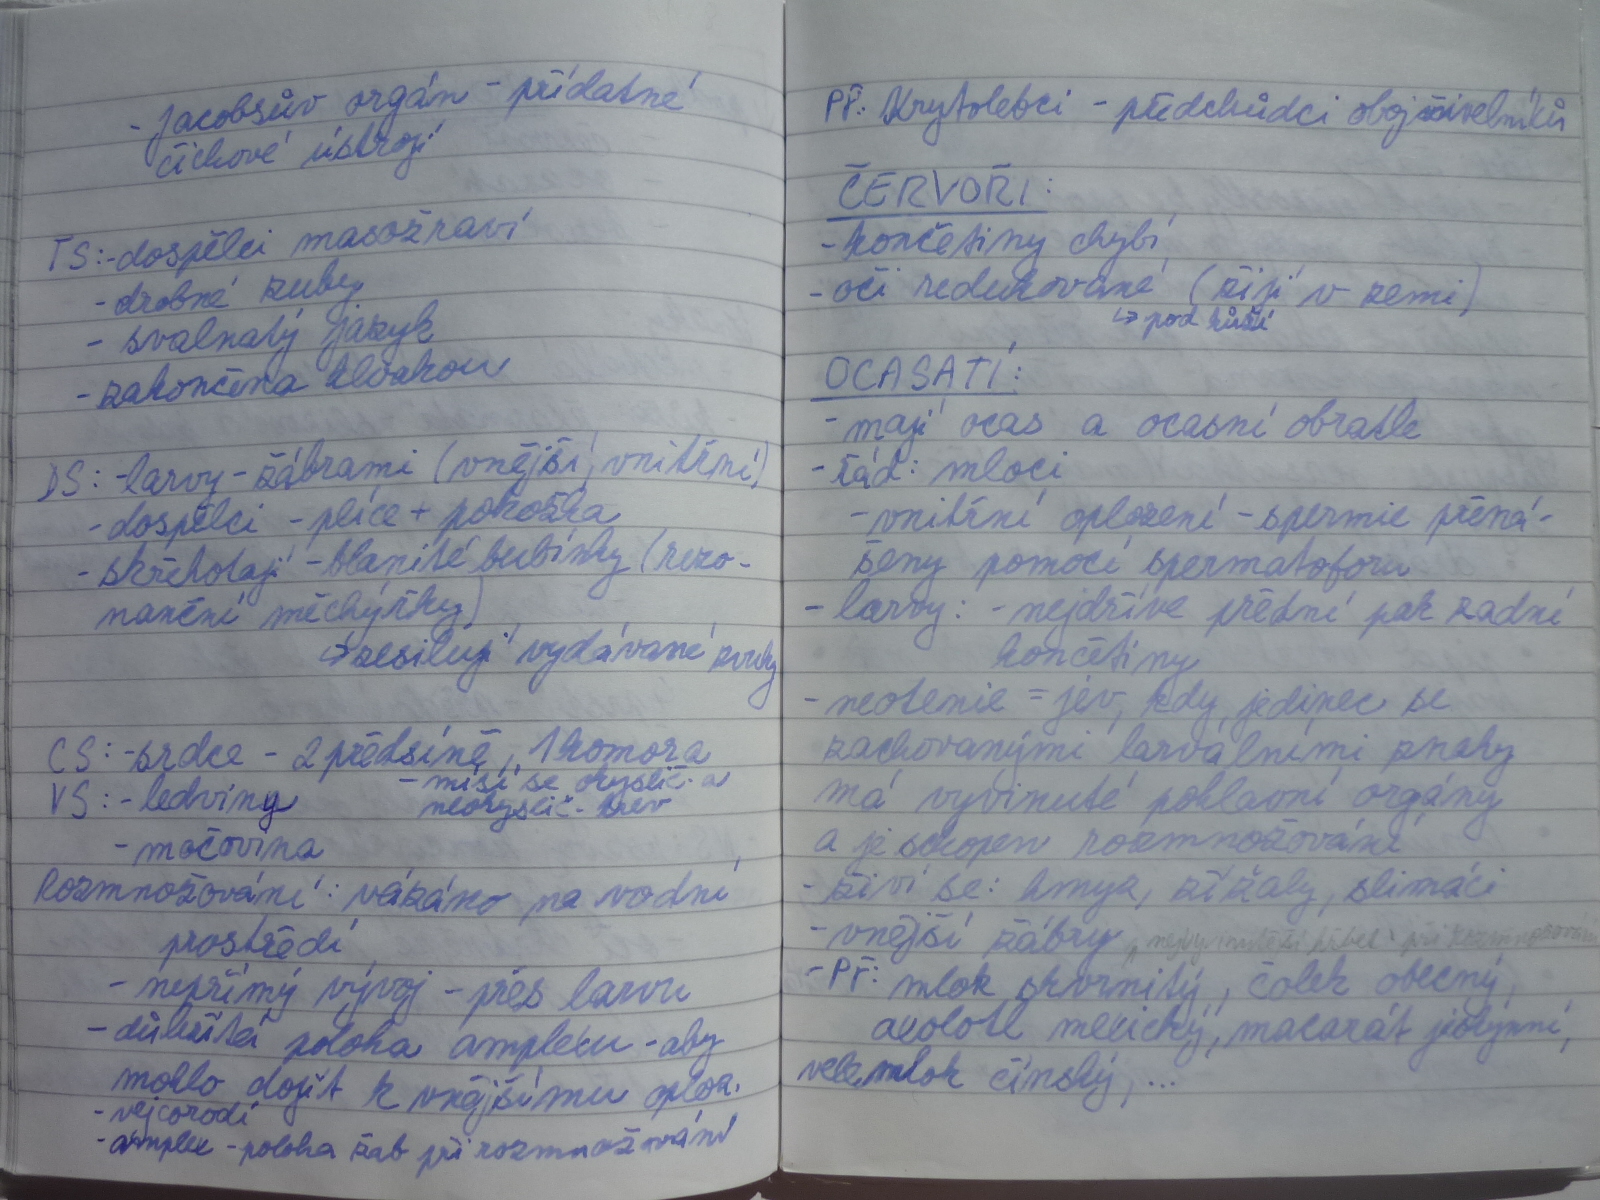 - Jacobsův orgán - přídatné
čichové ústrojí
TS: - dospělci masožraví
- drobné zuby
- svalnatý jazyk
- zakončena kloakou
DS: - larvy - žábrami (vnější, vnitřní)
- dospělci - plíce + pokožka
- skřehotají - blanité bubínky (rezo-
nanční měchýřky)
↳ zesilují vydávané zvuky
CS: - srdce - 2 předsíně, 1 komora
- mísí se okyslič. a
neokyslič. krev
VS: - ledviny
- močovina
Rozmnožování: vázáno na vodní
prostředí
- nepřímý vývoj - přes larvu
- důležitá poloha amplexu - aby
mohlo dojít k vnějšímu oploz.
- vejcorodí
- amplex - poloha žab při rozmnožování
PŘ: Krytolebci - předchůdci obojživelníků
ČERVOŘI:
- končetiny chybí
- oči redukované (žijí v zemi)
↳ pod kůží
OCASATÍ:
- mají ocas a ocasní obratle
- řád: mloci
- vnitřní oplození - spermie přená-
šeny pomocí spermatoforu
- larvy: - nejdříve přední pak zadní
končetiny
- neotenie = jev, kdy jedinec se
zachovanými larválními znaky
má vyvinuté pohlavní orgány
a je schopen rozmnožování
- živí se: hmyz, žížaly, slimáci
- vnější žábry
při rozmnožování
- PŘ: mlok skvrnitý, čolek obecný,
axolotl mexický, macarát jeskynní,
velemlok čínský, ...